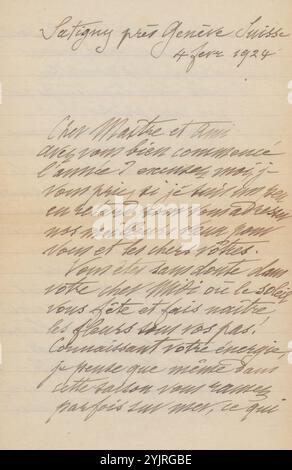 Satigny près Genève Suisse
4 fevr 1924
Cher Maître et Ami
avez vous bien commencé
l'année? excusez moi, je
vous prie, si je suis un peu
en retard pour vous adresser
nos meilleurs vœux pour
vous et les chers vôtres.
Vous êtes sans doute dans
votre cher Midi où le soleil
vous fête et fais naître
les fleurs sous vos pas.
Connaissant votre énergie
je pense que même dans
cette saison vous ramez
parfois sur mer, ce qui
alamy
Image ID: 2YJRGBE
www.alamy.com